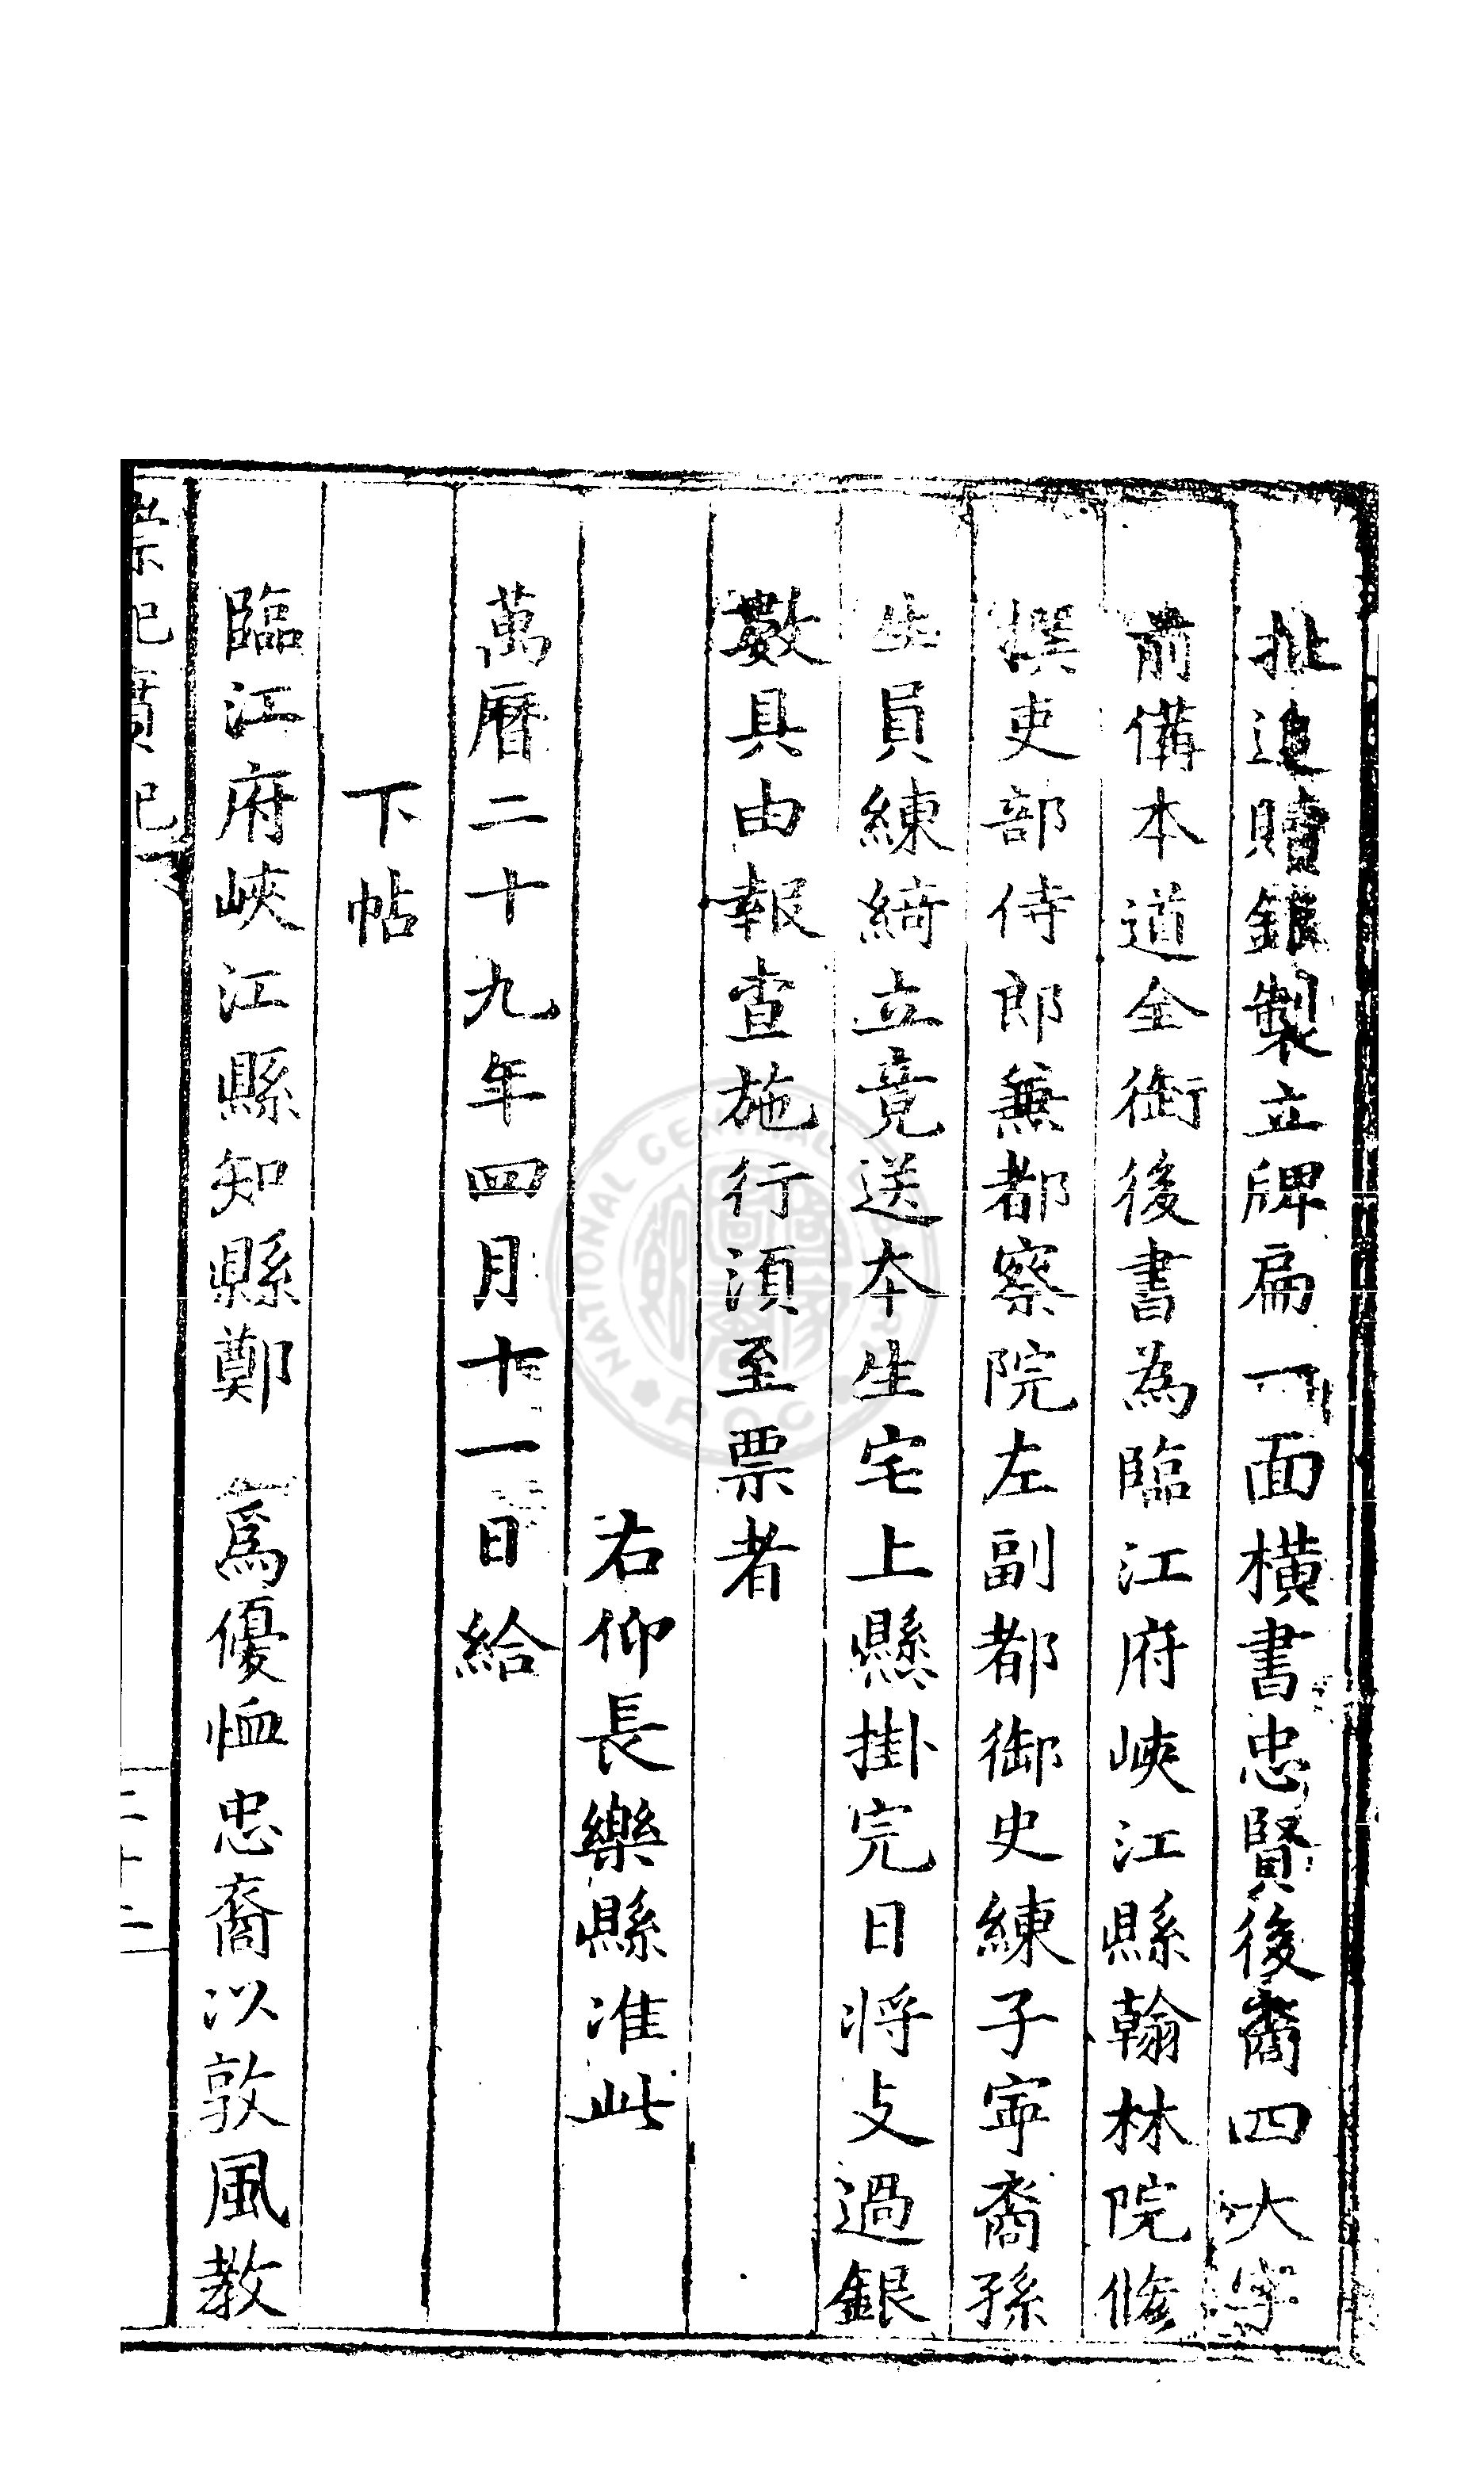 批追贖銀製立牌扁一面橫書忠賢後裔四大字
前備本道全銜後書為臨江府峽江縣翰林院修
撰吏部侍郎兼都察院左副都御史練子寧裔孫
生員練綺立竟送本生宅上懸掛完日將支過銀
數具由報查施行須至票者
右仰長樂縣准此
萬曆二十九年四月十一日給
下帖
臨江府峽江縣知縣鄭　為優恤忠裔以敦風教
崇祀實紀
二十二
NATIONAL CENTRAL LIBRARY
R.O.C.